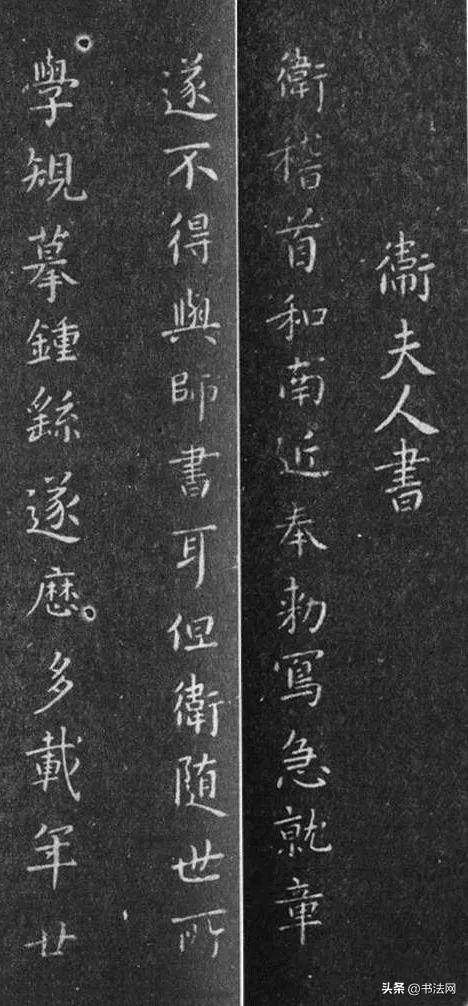 衛夫人書
衛稽首和南近奉勅寫急就章
遂不得與師書耳但衛随世所
學規摹鍾繇遂歷多載年廿
头条 @书法网